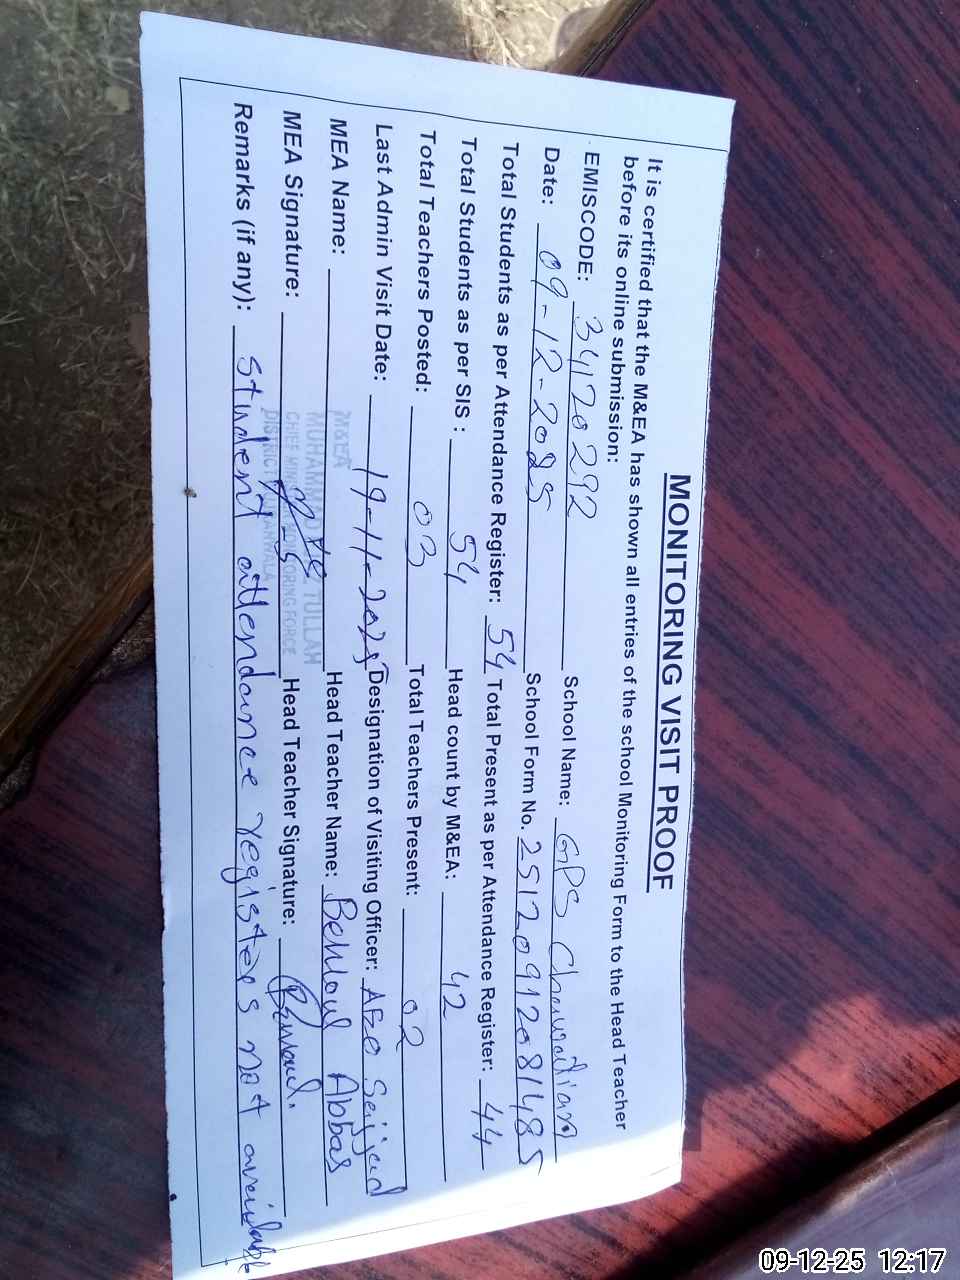 MONITORING VISIT PROOF
It is certified that the M&EA has shown all entries of the school Monitoring Form to the Head Teacher
before its online submission:
EMISCODE: 34120292 School Name: GPS
Date: 09-12-2025 School Form No. 25120912081485
Total Students as per Attendance Register: 54 Total Present as per Attendance Register: 44
Total Students as per SIS : 54 Head count by M&EA: 42
Total Teachers Posted: 03 Total Teachers Present: 02
Last Admin Visit Date: 19-11-2025 Designation of Visiting Officer: AEO Sajjad
MEA Name: Head Teacher Name: Behloul Abbas
M&EA
MUHAMMAD TULLAH
CHIEF MINISTER MONITORING FORCE
DISTRICT
MEA Signature: Head Teacher Signature:
Remarks (if any): student attendance registers not available
09-12-25 12:17